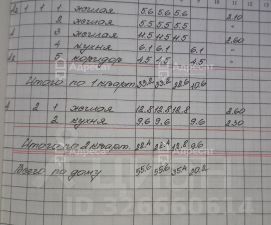 1 1 1 жилая 5.6 5.6 5.6 2.10
2 жилая 5.5 5.5 5.5 "
3 жилая 11.5 11.5 11.5 2.60
4 кухня 6.1 6.1 6.1 "
5 коридор 4.5 4.5 4.5 "
Итого по 1 кварт. 33.2 33.2 22.6 10.6
2 1 жилая 12.8 12.8 12.8 2.60
2 кухня 9.6 9.6 9.6 2.30
Итого по 2 кварт. 22.4 22.4 12.8 9.6
Всего по дому 55.6 55.6 35.4 20.2